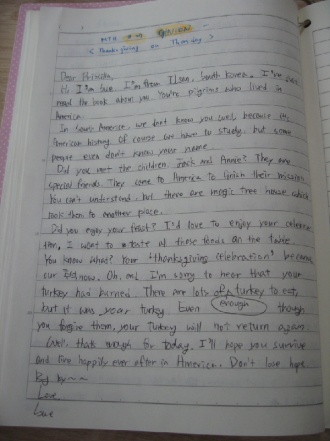 MTH #27
< Thanksgiving on Thursday >
Dear
Hi, I'm from Ilsan, South Korea. I've
read the book about you. You're pilgrims who lived in
America.
In America, we don't know you well, because it's
American history. Of course we have to study, but some
people even don't know your name.
Did you meet the children, Jack and Annie? They are
special friends. They come to America to finish their mission.
You can't understand, but there are magic tree house which
took them to another place.
Did you enjoy your feast? I'd love to enjoy your celebra-
tion. I want to taste all these foods on the table.
You know what? Your "thanksgiving celebration" became
our now. Oh, and I'm sorry to hear that your
turkey had burned. There are lots of turkey to eat,
but it was your turkey. Even enough though
you forgive them, your turkey will not return again.
Well, that's enough for today. I'll hope you survive
and live happily ever after in America. Don't lose hope.
Bye bye~~
Love
Love